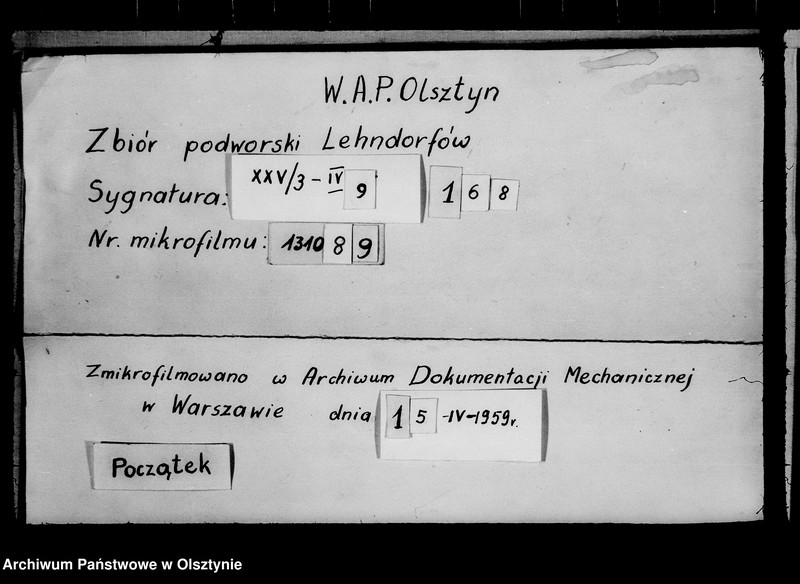 W.A.P. Olsztyn
Zbiór podworski Lehndorfów
Sygnatura: XXV/3 - IV 9 168
Nr. mikrofilmu: 131089
Zmikrofilmowano w Archiwum Dokumentacji Mechanicznej
w Warszawie dnia 15 -IV-1959r.
Początek
Archiwum Państwowe w Olsztynie